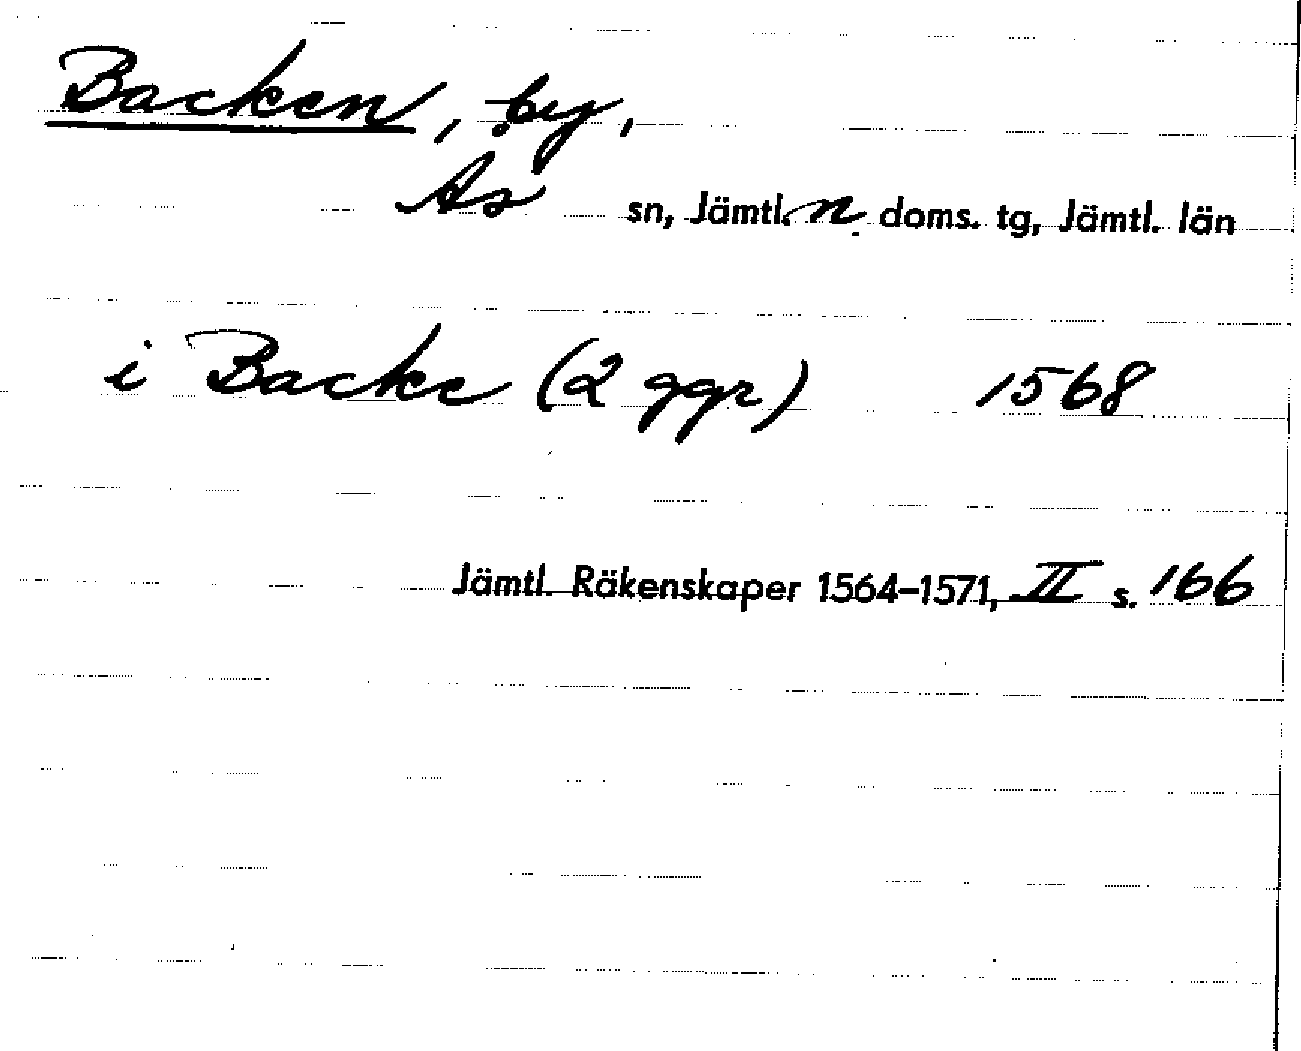 Backen, by,
Ås sn, Jämtl. n. doms. tg, Jämtl. län
i Backe (2 ggr) 1568
Jämtl. Räkenskaper 1564–1571, II s. 166